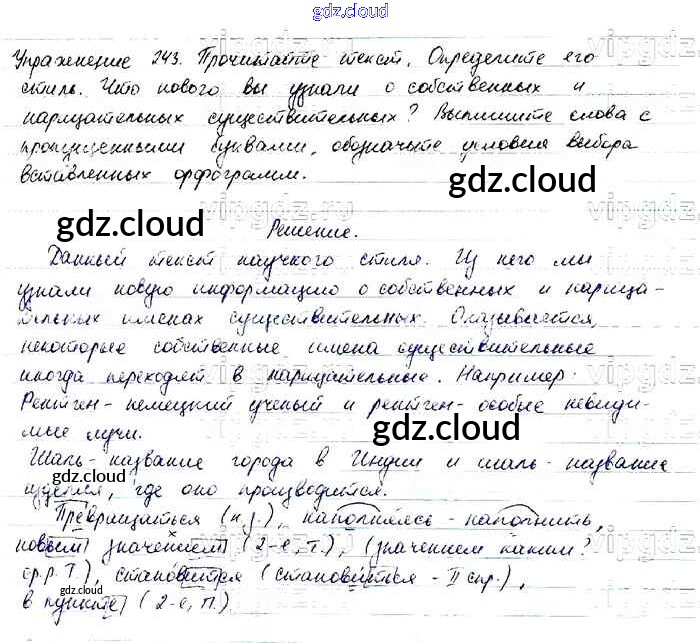 gdz.cloud
Упражнение 243. Прочитайте текст. Определите его
стиль. Что нового вы узнали о собственных и
нарицательных существительных? Выпишите слова с
пропущенными буквами, обозначьте условия выбора
вставленных орфограмм.
gdz.cloud
gdz.cloud
Решение.
Данный текст научного стиля. Из него мы
узнали новую информацию о собственных и нарица-
тельных именах существительных. Оказывается,
некоторые собственные имена существительные
иногда переходят в нарицательные. Например:
Рентген - немецкий ученый и рентген - особые невиди-
мые лучи.
gdz.cloud
Шаль - название города в Индии и шаль - название
изделия, где оно производится.
gdz.cloud
Превращаться (н.з.), наполнялась - наполнить,
новым значением (2-е, т.), (значением каким?
ср.р. Т.), становится (становиться - II спр.),
gdz.cloud
в пункте (2-е, П.)
vipgdz